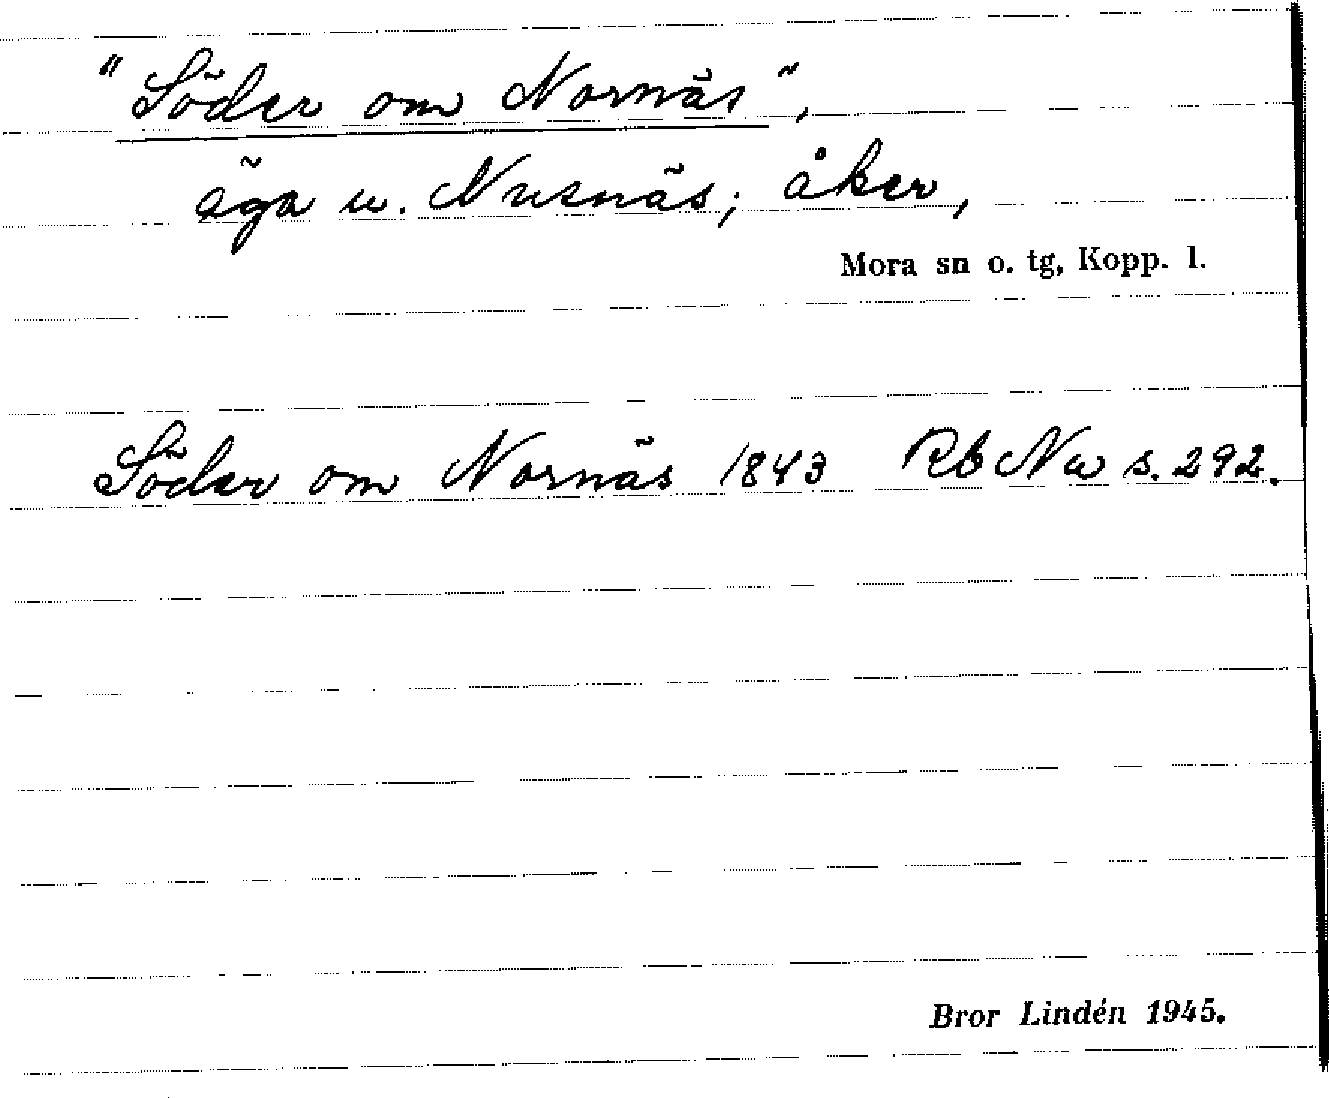 "Söder om Nornäs",
äga u. Nusnäs; åker,
Mora sn o. tg, Kopp. l.
Söder om Nornäs 1843 Rb Nu s. 292.
Bror Lindén 1945.